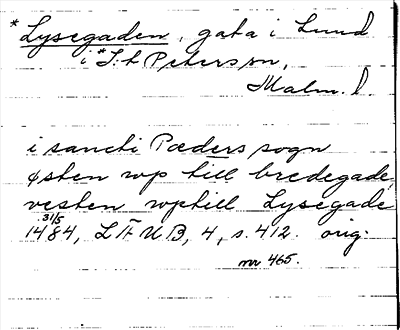 *Lysegaden, gata i Lund
i *S:t Peterssn,
Malm. l.
i sancti Pæders sogn
østen wp till bredegade,
vesten wptill Lysegade
31/5
1484, LÄUB, 4, s. 412. orig.
nr 465.